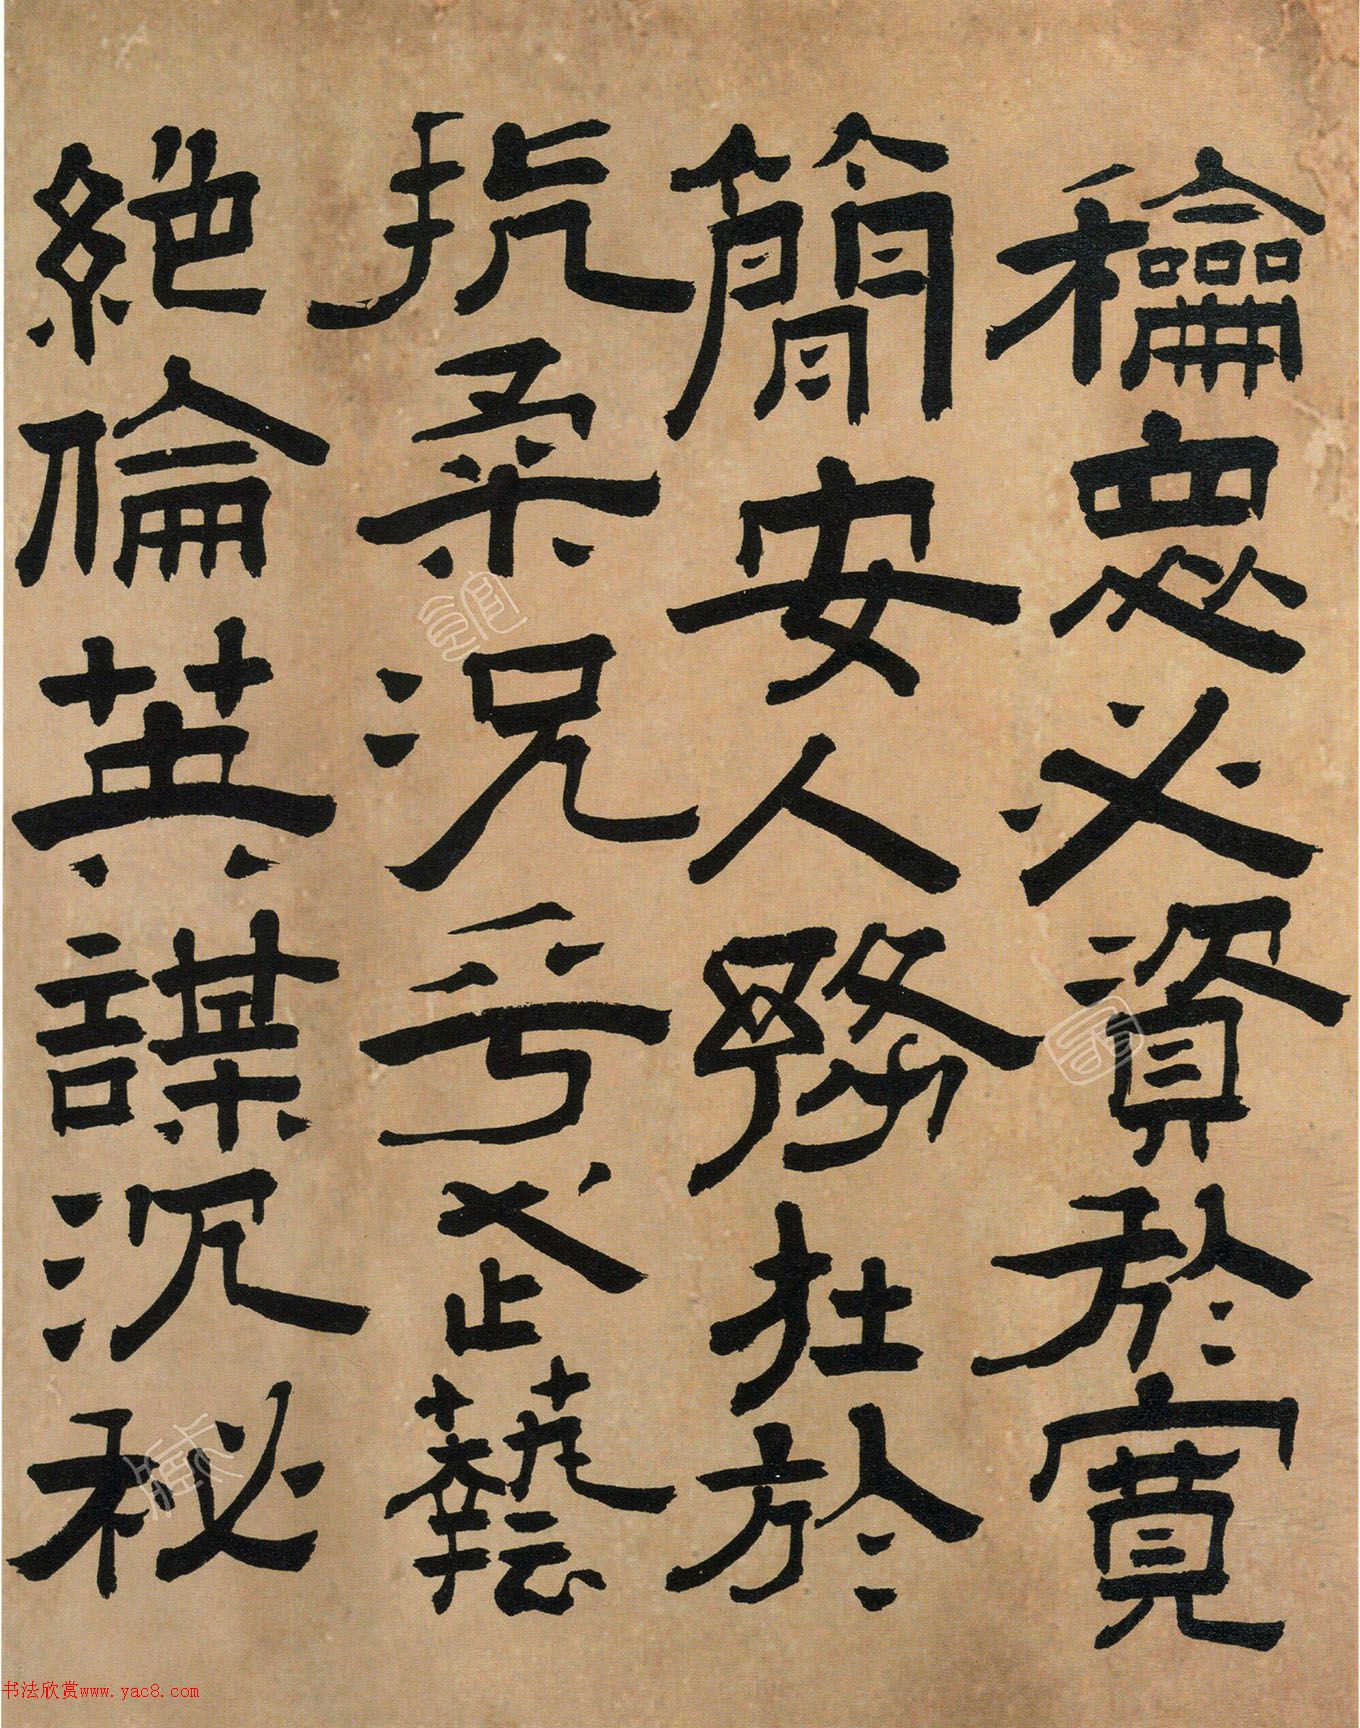 龢眾必資於寬
簡安人務在於
抚柔況乎武藝
絕倫英謀沉秘
书法欣赏www.yac8.com